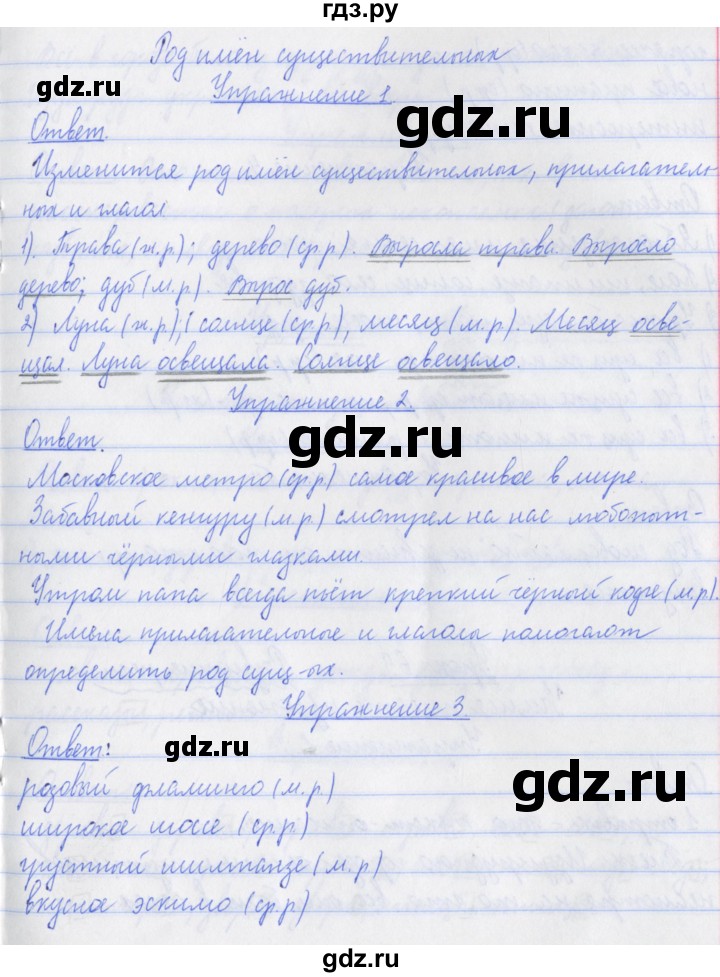 гдз.ру
Род имён существительных
gdz.ru
Упражнение 1.
gdz.ru
Ответ.
Изменится род имён существительных, прилагатель-
ных и глагол
1). Трава (ж.р); дерево (ср.р). Выросла трава. Выросло
дерево; дуб (м.р). Вырос дуб.
2) Луна (ж.р), солнце (ср.р), месяц (м.р). Месяц осве-
щал. Луна освещала. Солнце освещало.
Упражнение 2.
gdz.ru
Ответ.
Московское метро (ср.р) самое красивое в мире.
Забавный кенгуру (м.р) смотрел на нас любопыт-
ными чёрными глазками.
Утром папа всегда пьёт крепкий чёрный кофе (м.р).
Имена прилагательные и глаголы помогают
определить род сущ-ых.
Упражнение 3
Ответ:
gdz.ru
розовый фламинго (м.р)
gdz.ru
широкое шоссе (ср.р)
грустный шимпанзе (м.р)
вкусное эскимо (ср.р)
gdz.ru